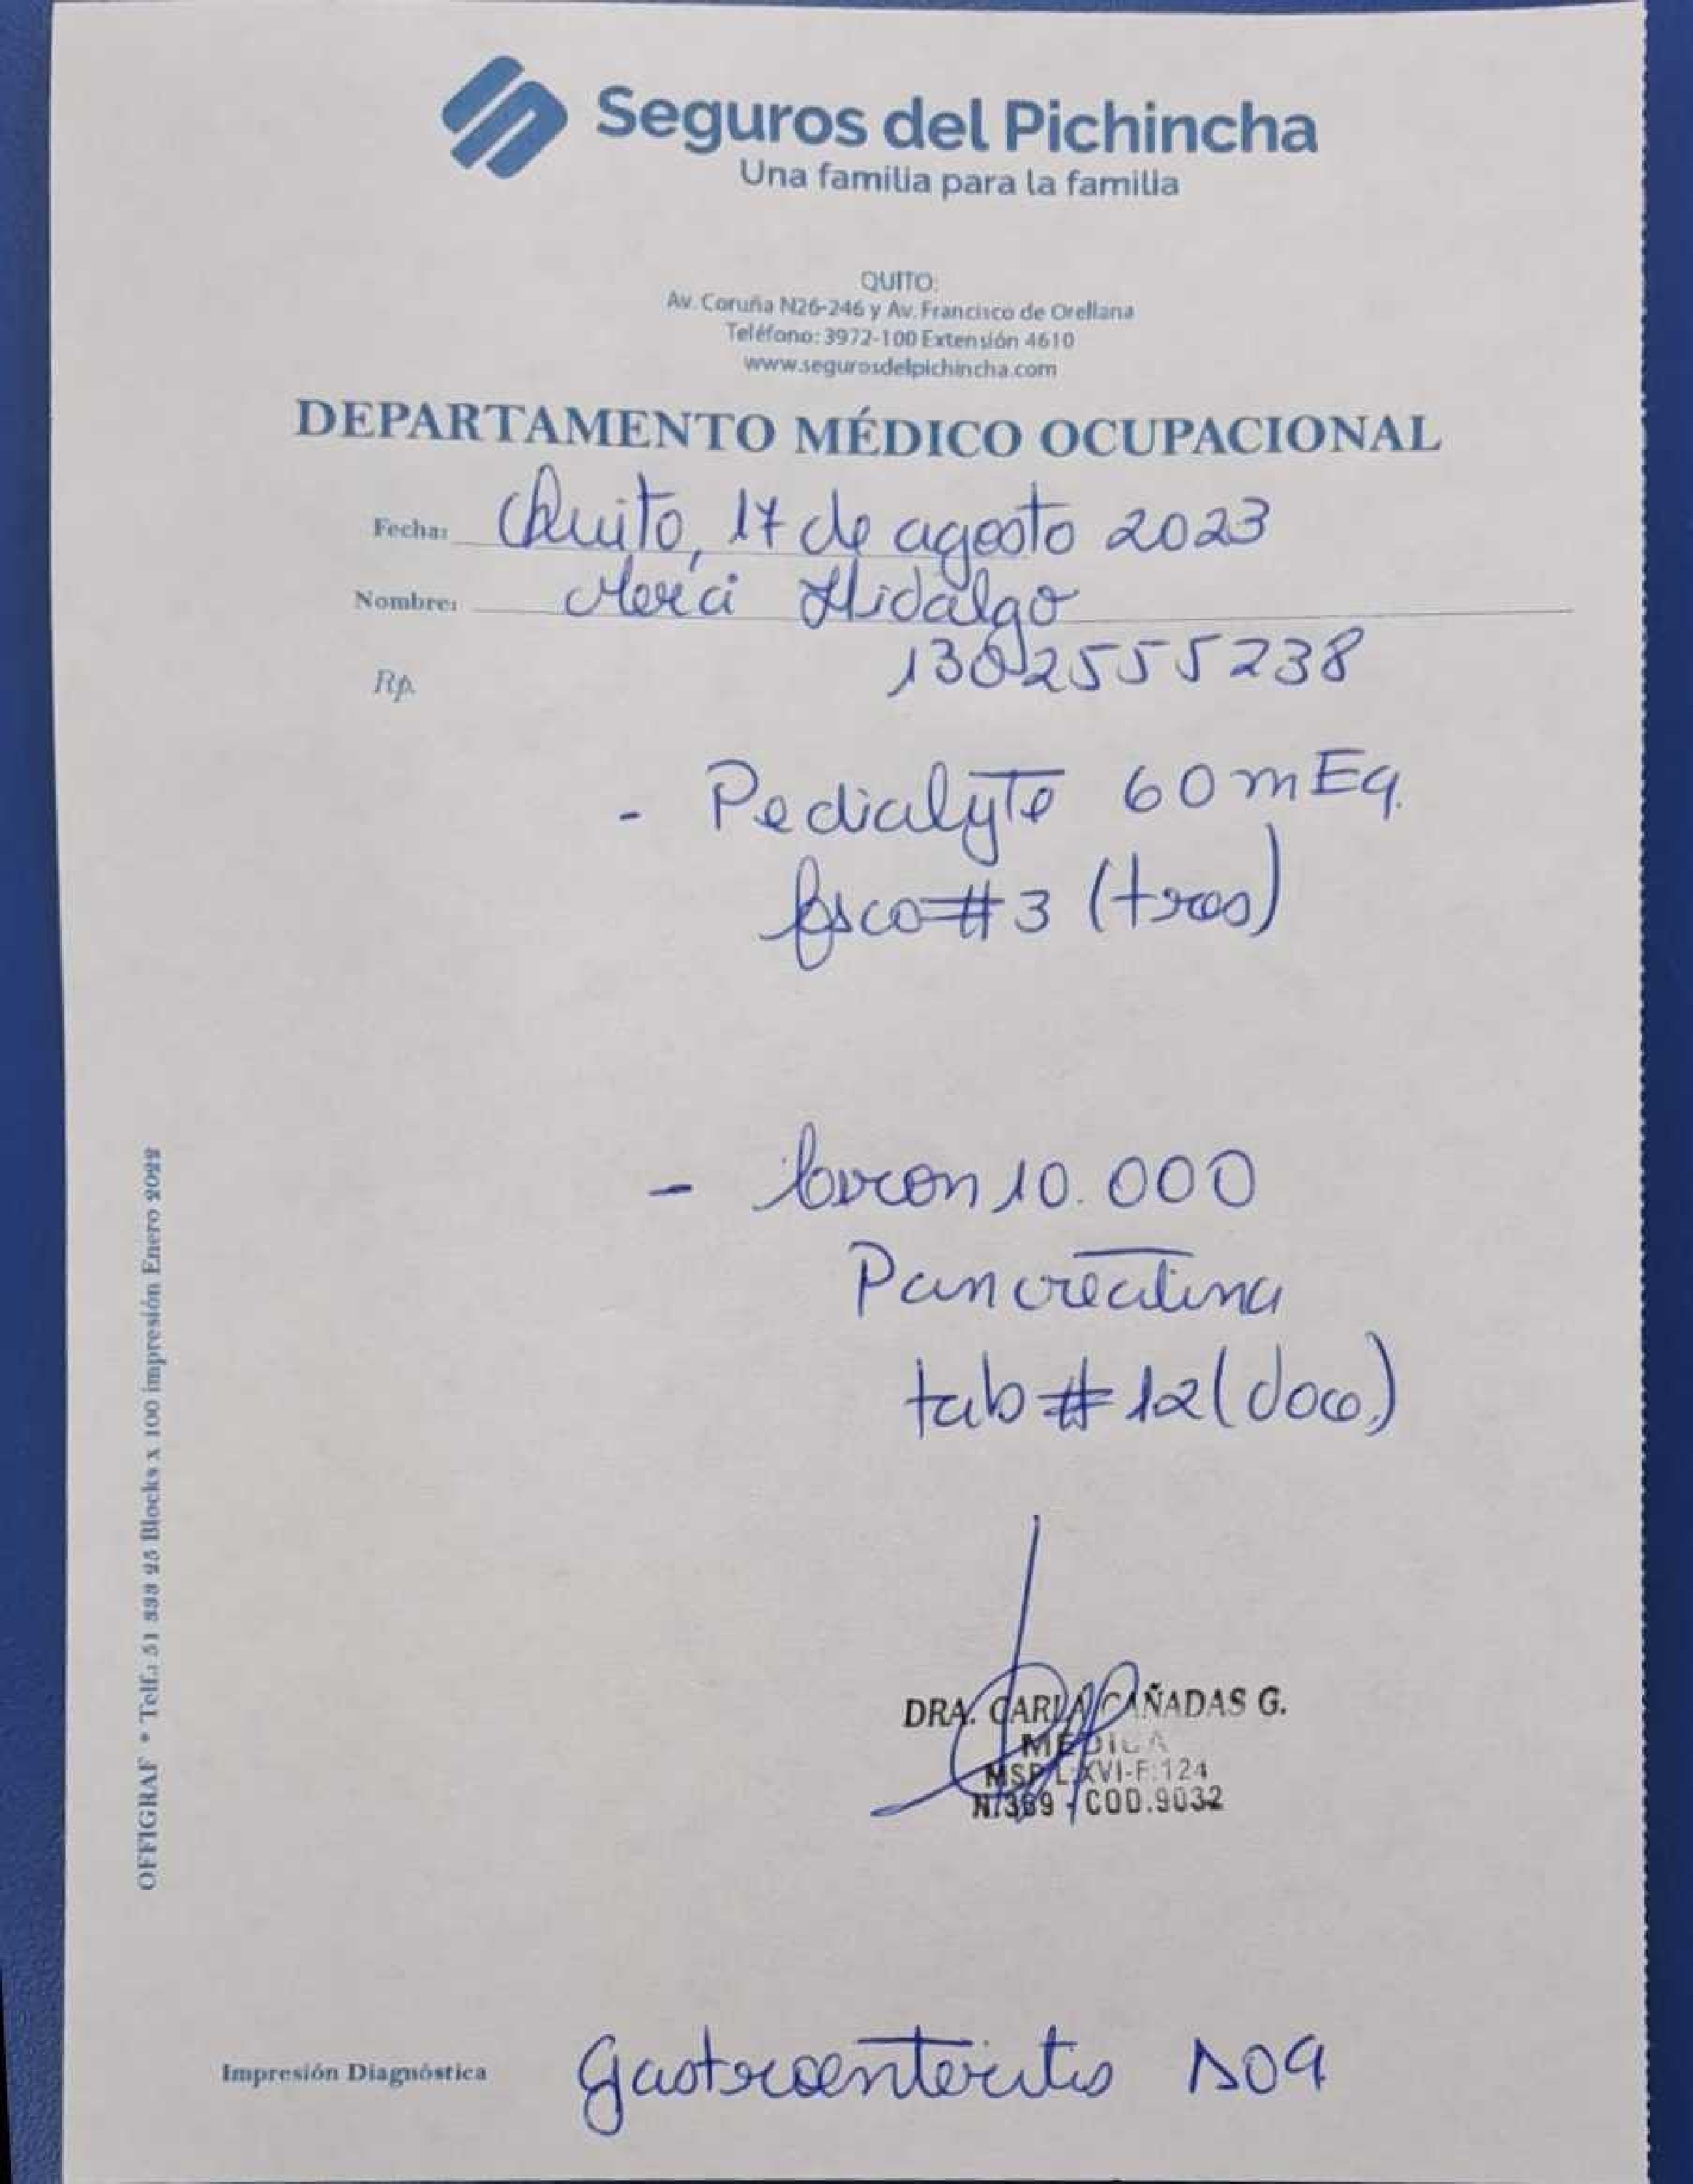 Seguros del Pichincha
Una familia para la familia
QUITO:
Av. Coruña N26-246 y Av. Francisco de Orellana
Teléfono: 3972-100 Extensión 4610
www.segurosdelpichincha.com
DEPARTAMENTO MÉDICO OCUPACIONAL
Fecha: Quito, 17 de agosto 2023
Nombre: Merci Hidalgo
1302555238
Rp.
- Pedialyte 60 mEq.
fsco # 3 (tres)
- 10.000
Pancreatina
tab # 12 (doce)
DRA. CARLA CAÑADAS G.
MEDICA
MSP L:XVI-F:124
N.369 - COD.9032
OFFIGRAF * Telf.: 51 333 25 Blocks x 100 impresión Enero 2022
Impresión Diagnóstica Gastroenteritis A09